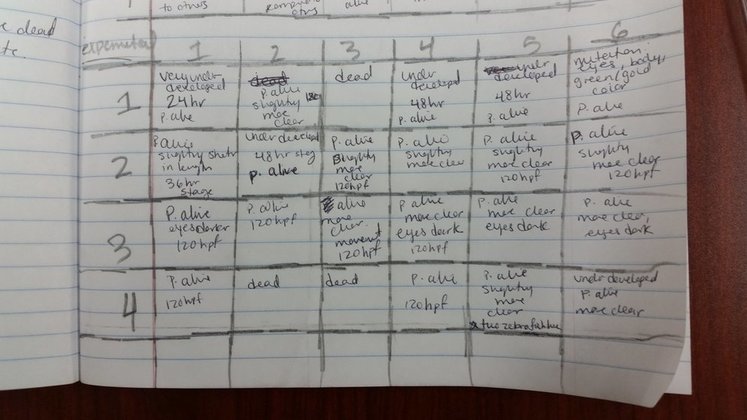 to others
others
alive
e dead
te.
experimental 1 2 3 4 5 6
1
very under
developed
24 hr
p. alive
p. alive
slightly
more
clear
dead
under
developed
48 hr
p. alive
under
developed
48 hr
p. alive
mutation:
eyes, body,
green/gold
color
p. alive
2
p. alive
slightly
in length
36 hr
stage
under developed
48 hr stag
p. alive
p. alive
slightly
more
clear
120hpf
p. alive
slightly
more clear
p. alive
slightly
more clear
120hpf
p. alive
slightly
more clear
120 hpf
3
p. alive
eyes darker
120hpf
p. alive
120hpf
alive
more
clear.
movement
120hpf
p. alive
more clear
eyes dark
120hpf
p. alive
more clear
eyes dark
p. alive
more clear,
eyes dark
4
p. alive
120hpf
dead
dead
p. alive
120hpf
p. alive
slightly
more
clear
under developed
p. alive
more clear